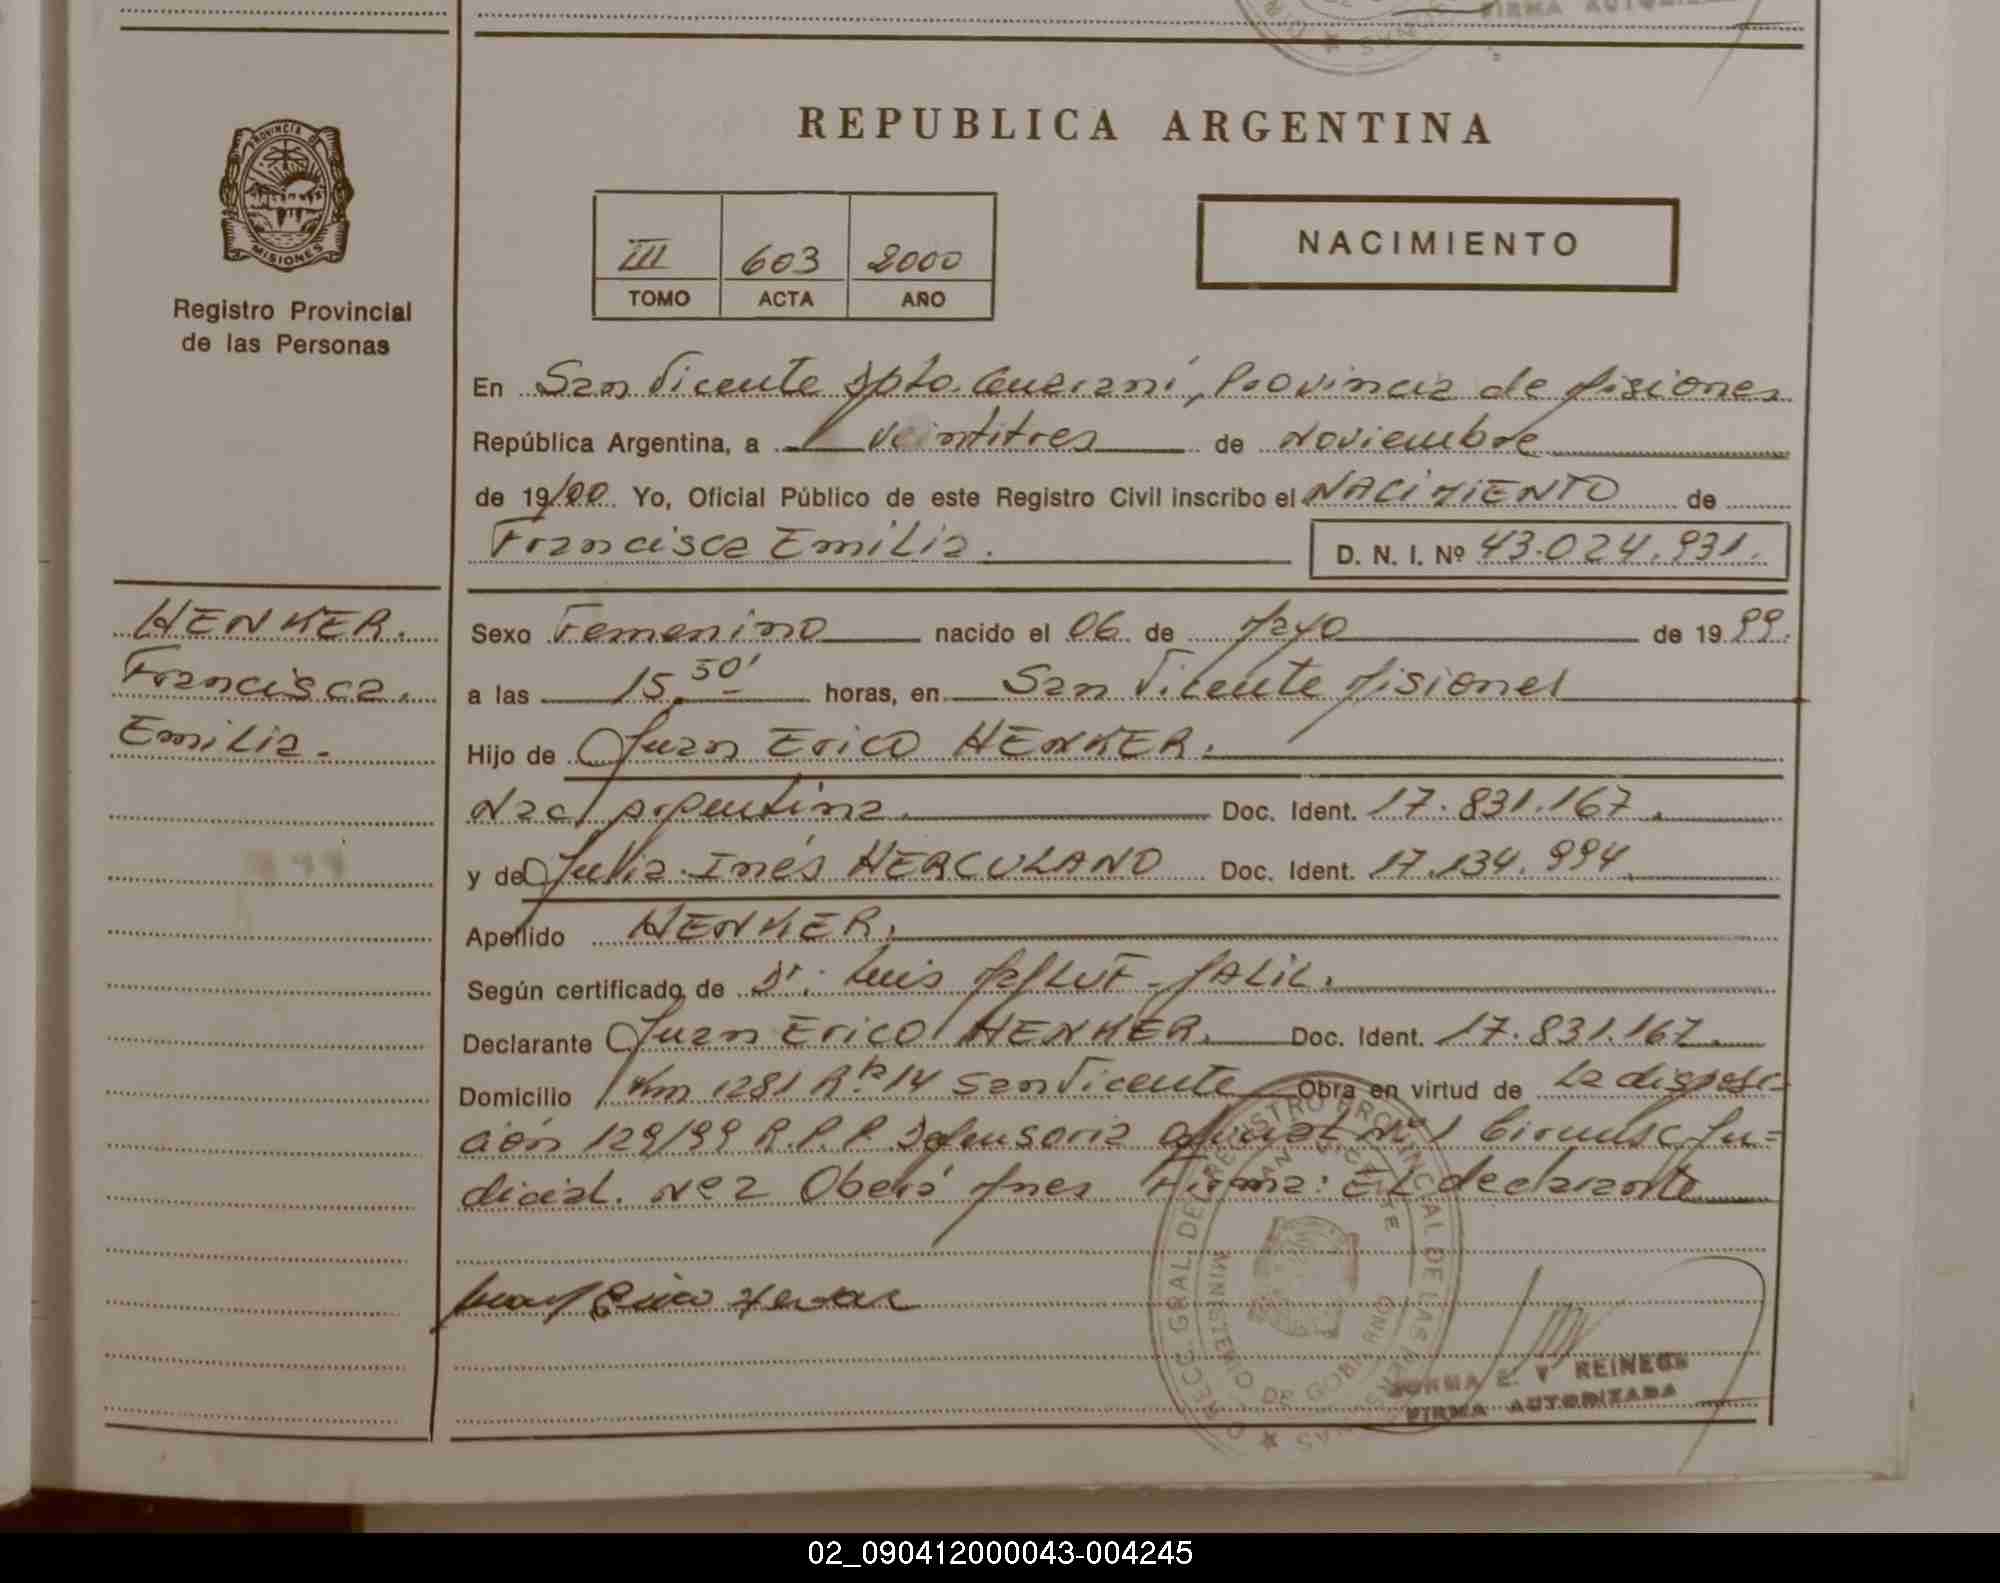 FIRMA AUTORIZADA
REPUBLICA ARGENTINA
PROVINCIA DE
MISIONES
Registro Provincial
de las Personas
III 603 2000
TOMO ACTA AÑO
NACIMIENTO
En San Vicente Dpto. Guaraní, Provincia de Misiones
República Argentina, a veintitres de Noviembre
de 19/00. Yo, Oficial Público de este Registro Civil inscribo el NACIMIENTO de
Francisca Emilia. D. N. I. Nº 43.024.931.
HENKER.
Francisca.
Emilia.
Sexo Femenino nacido el 06 de Mayo de 1999.
a las 15,50' horas, en San Vicente Misiones
Hijo de Juan Erico HENKER.
Nac. Argentina. Doc. Ident. 17.831.167.
y de Julia Inés HERCULANO Doc. Ident. 17.134.994.
Apellido HENKER.
Según certificado de Dr. Luis JALIL.
Declarante Juan Erico HENKER. Doc. Ident. 17.831.167.
Domicilio Km 1281 Rta 14 San Vicente Obra en virtud de La disposi-
ción 129/99 R.P.P. Defensoria Oficial Nº 1 Circunsc. Ju-
dicial. Nº 2 Oberá Mnes Firma: El declarante
Juan Erico Henker
DIRECC GRAL. DEL REGISTRO PROVINCIAL DE LAS PERSONAS
SAN VICENTE
MINISTERIO DE GOBIERNO
NORMA E. V REINEGR
FIRMA AUTORIZADA
02_090412000043-004245